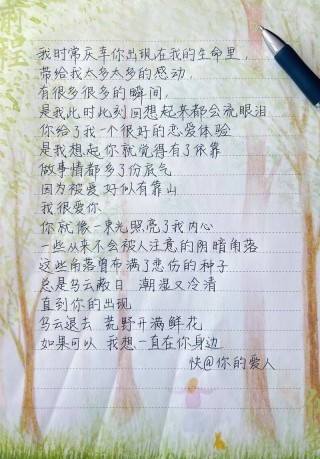 我时常庆幸你出现在我的生命里，
带给我太多太多的感动，
有很多很多的瞬间，
是我此时此刻回想起来都会流眼泪
你给了我一个很好的恋爱体验
是我想起你就觉得有了依靠
做事情都多了份底气
因为被爱好似有靠山
我很爱你
你就像一束光照亮了我内心
一些从来不会被人注意的阴暗角落
这些角落曾布满了悲伤的种子
总是乌云蔽日 潮湿又冷清
直到你的出现
乌云退去 荒野开满鲜花
如果可以 我想一直在你身边
快@你的爱人